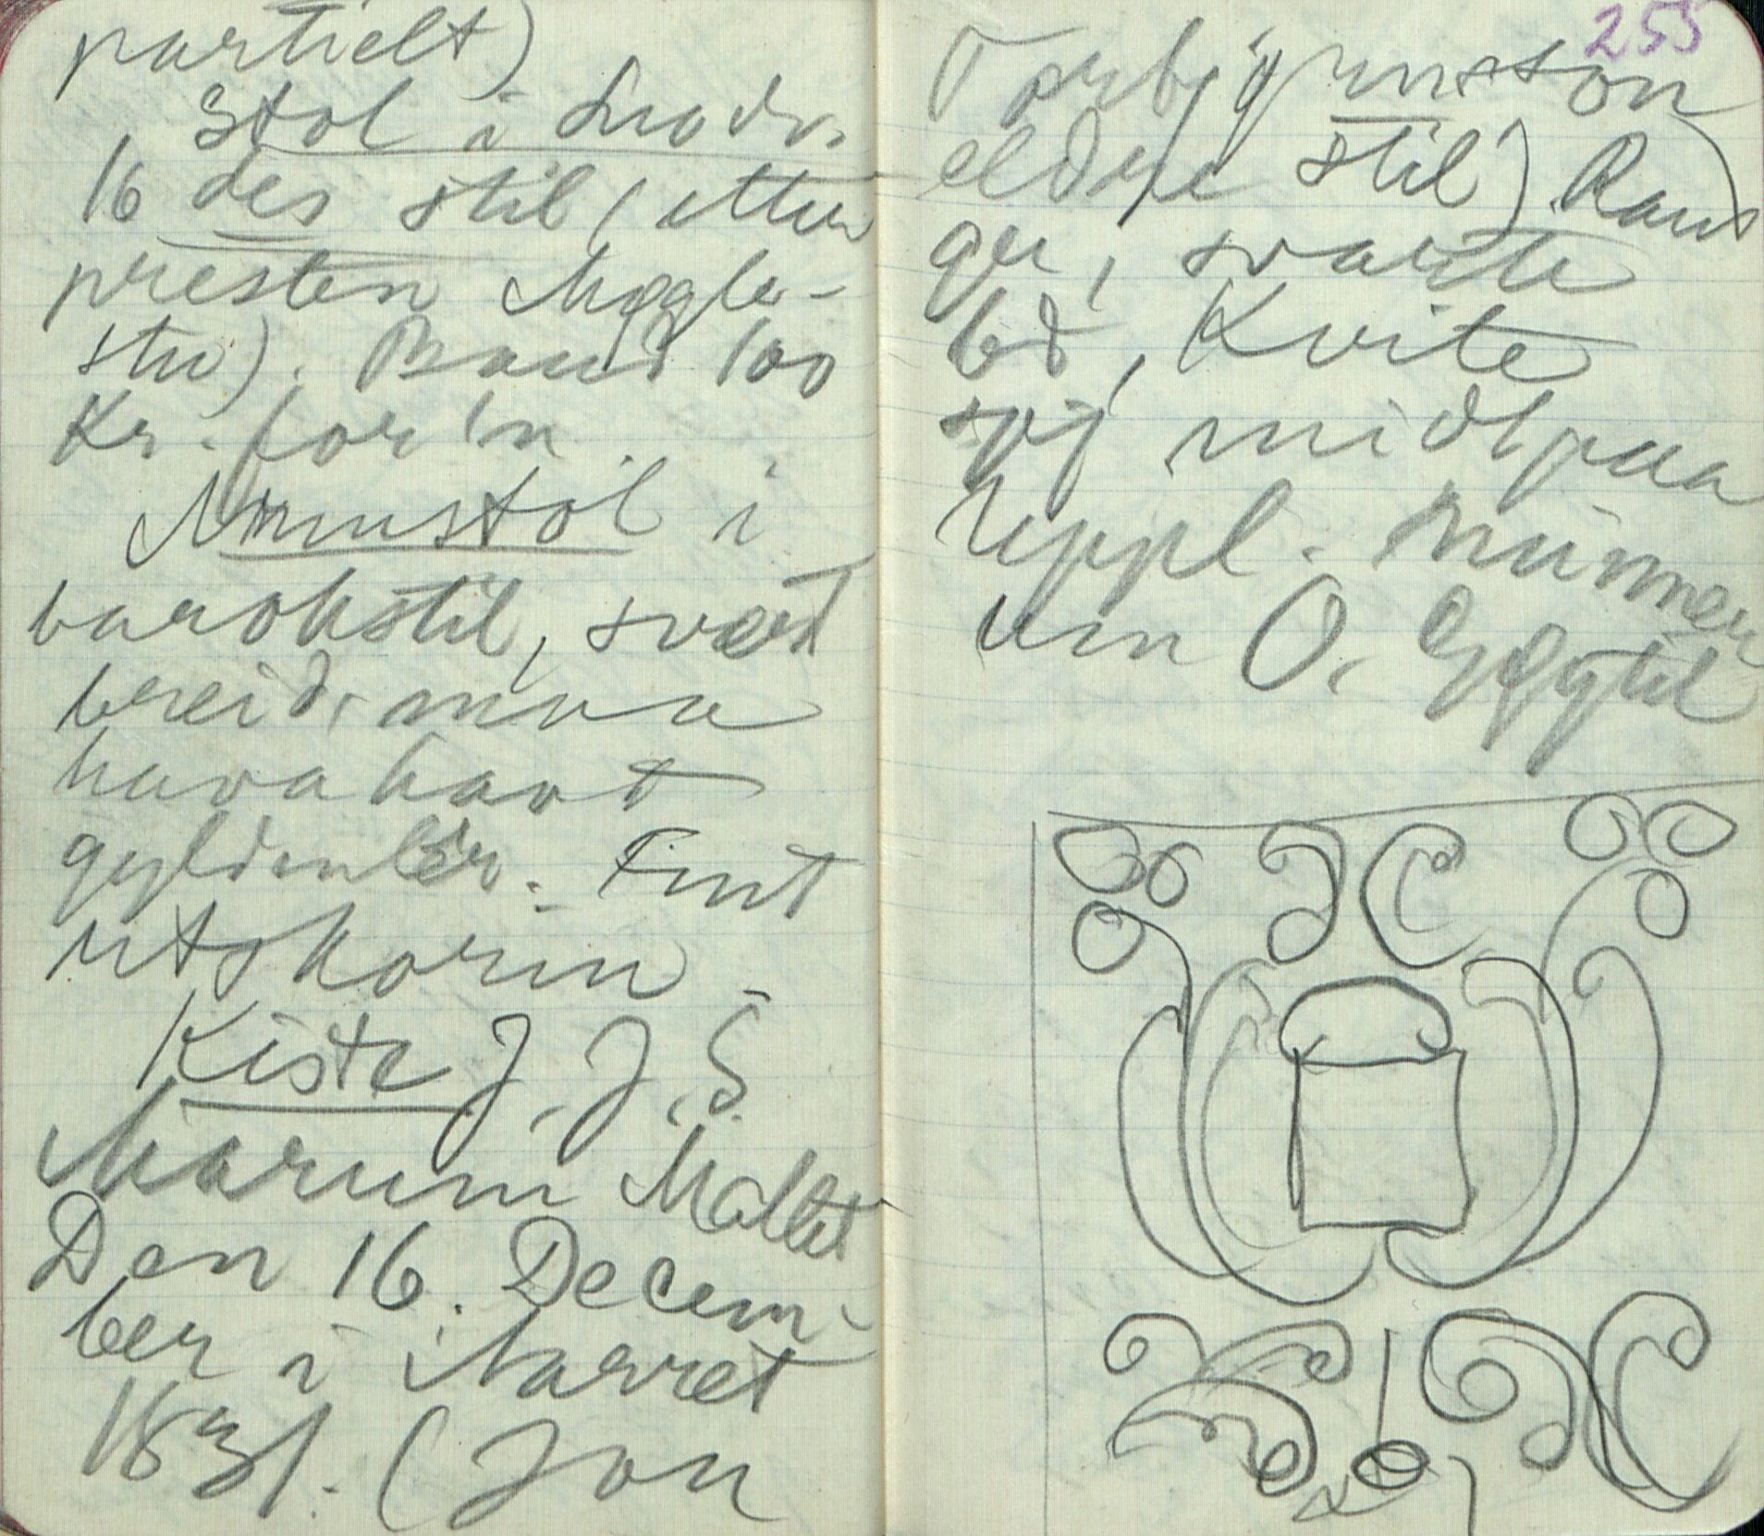 partielt)
Stol i Ludv.
16 des stil (etter
presten Mogle-
stu). Baud 100
Kr. for'n.
Armstol i
barokstil, svært
breid, maa
hava havt
gyldenlær. Fint
utskorin.
Kiste J. J. S.
Marum Mallet
Den 16. Decem-
ber i Aarret
1831. (Jon
255
Torbjørnson
eldre stil) Raud
ge, svarte
bd, Kvite
midt paa
Uppl. minner
um O.